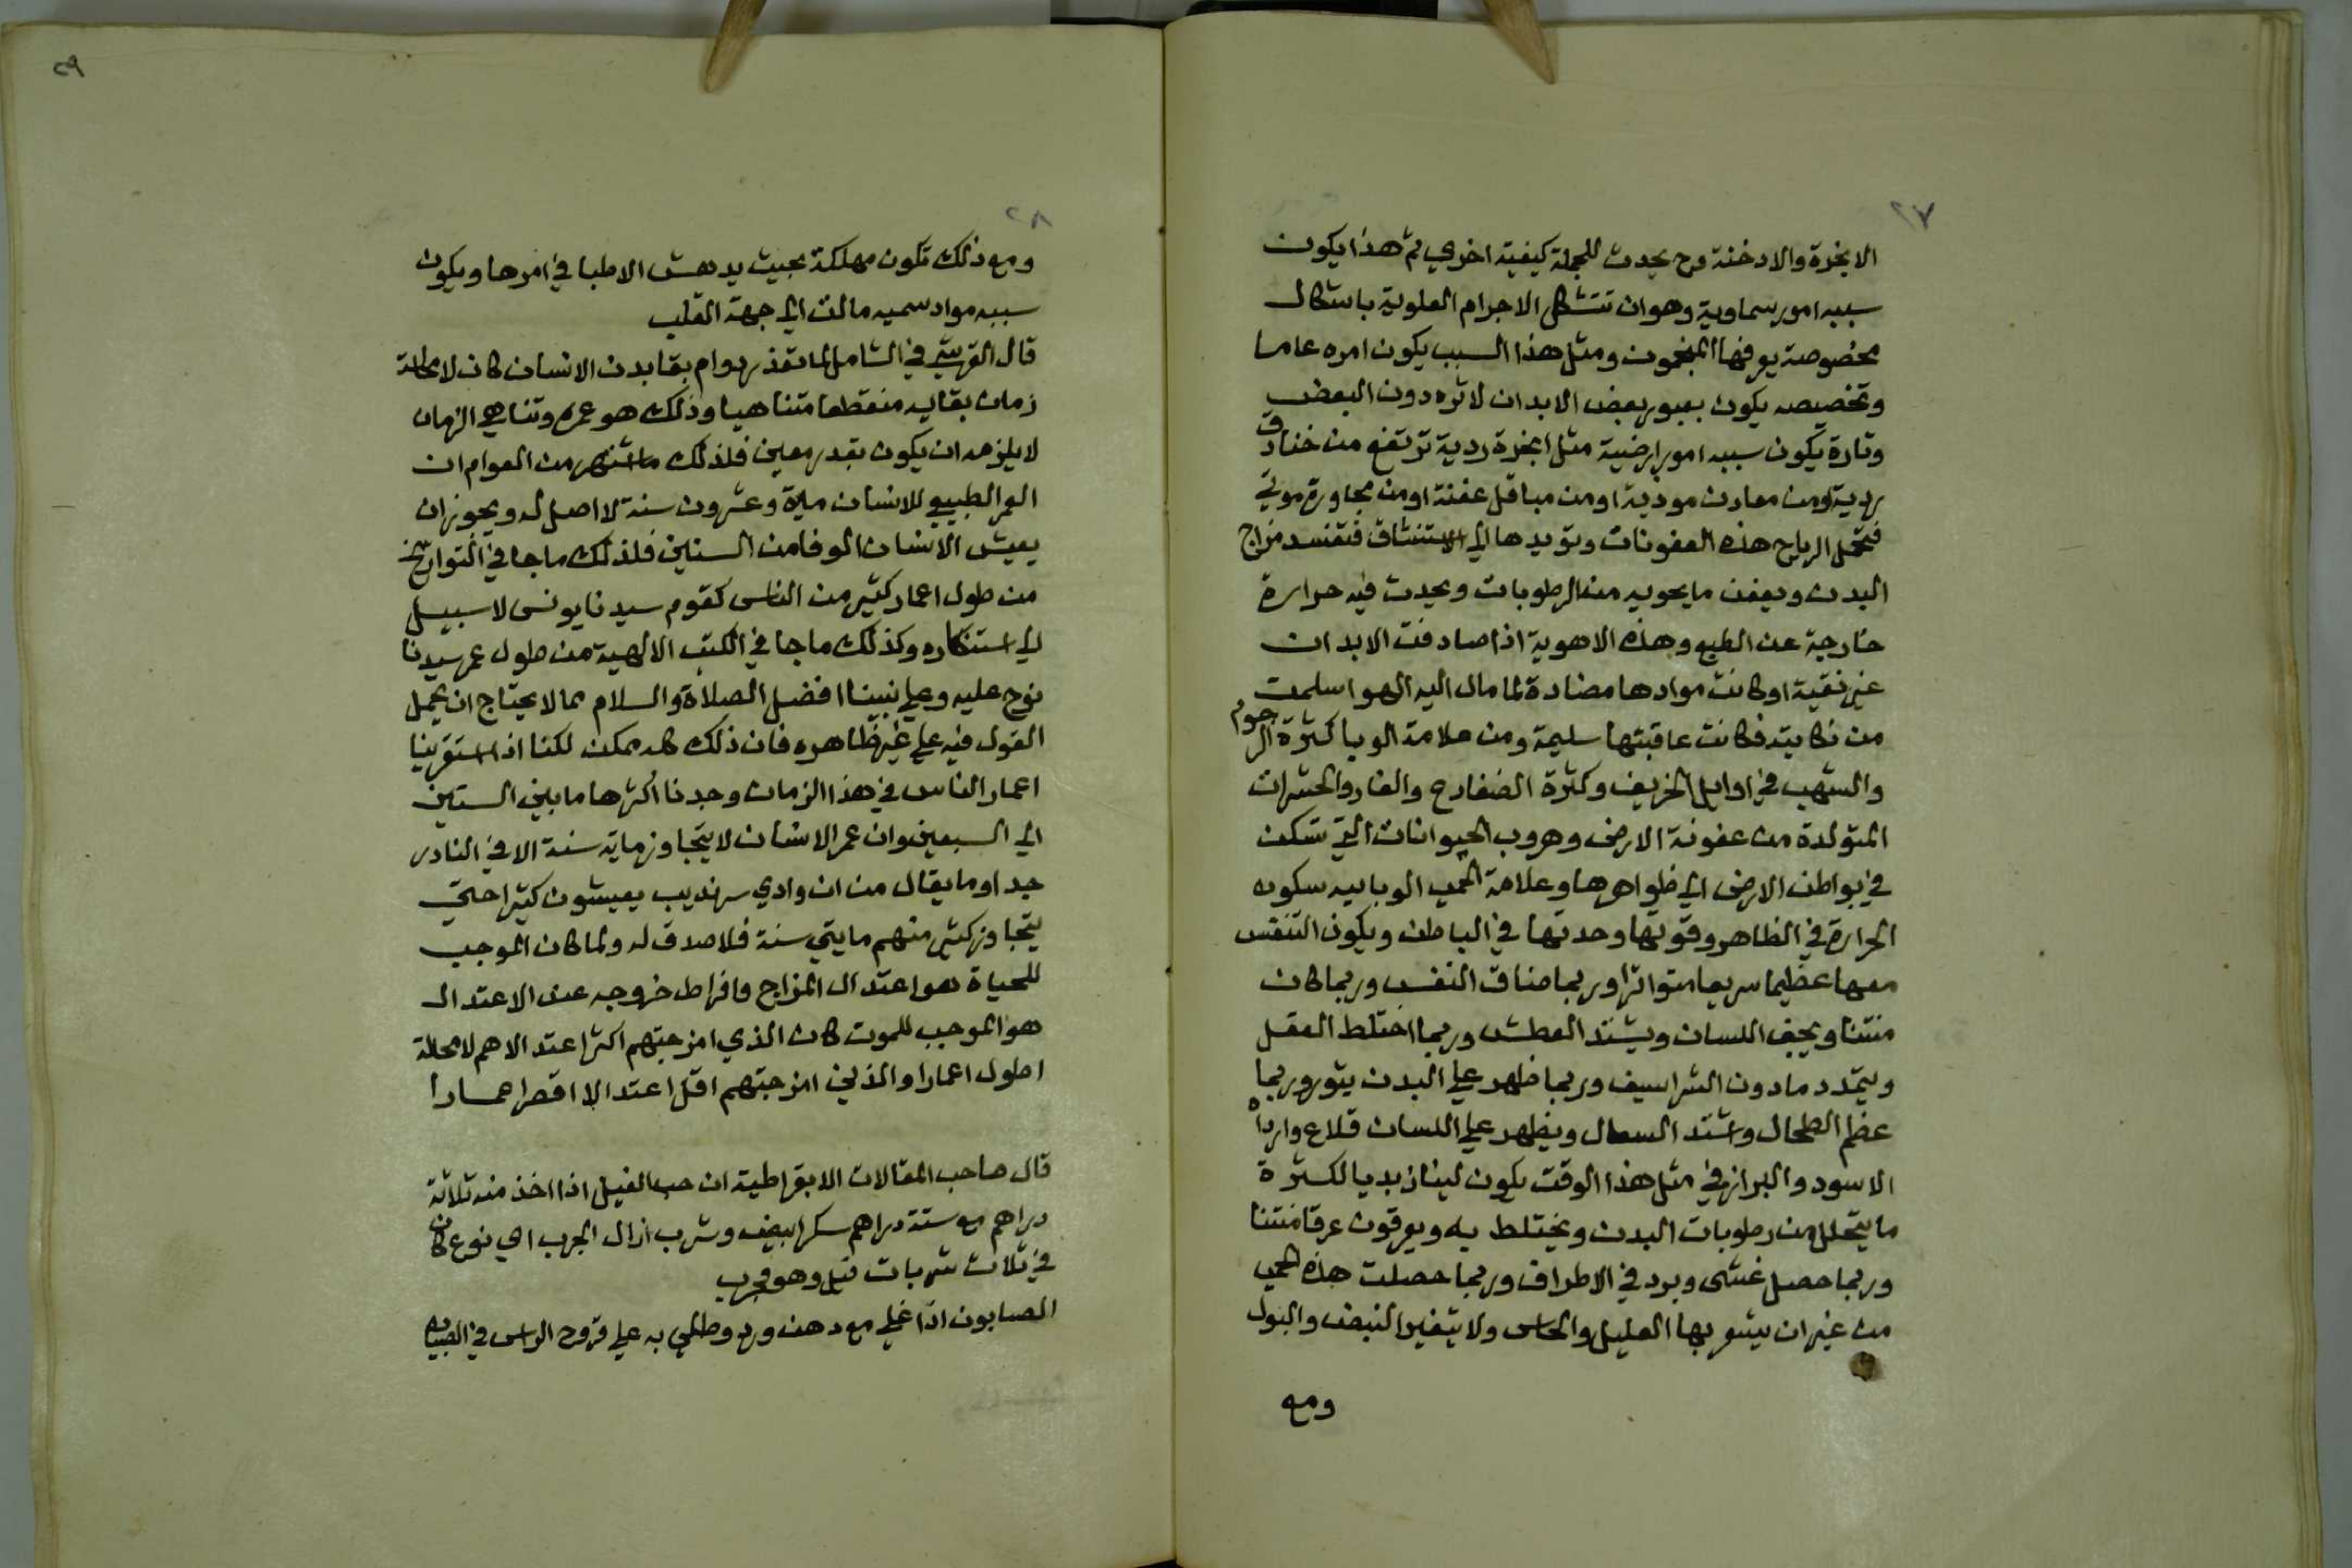 ٢٧
الابخرة والادخنة وح يحدث للجملة كيفية اخري ثم هذا يكون
سببه امور سماوية وهو ان تتشكل الاجرام العلوية باشكال
مخصوصة يعرفها المنجمون ومثل هذا السبب يكون امره عاما
وتخصيصه يكون بعبور بعض الابدان لاثره دون البعض
وتارة يكون سببه امور ارضية مثل ابخرة ردية ترتفع من خنادق
ردية ومن معادن موذية او من مباقل عفنة او من مجاورة موتي
فتحمل الرياح هذه العفونات وتوديها الي الاستنشاق فتفسد مزاج
البدن ويعفن ما يحويه من الرطوبات ويحدث فيه حرارة
خارجية عن الطبع وهذه الاهوية اذا صادفت الابدان
غير نقية او كانت موادها مضادة لما مال اليه الهوا سلمت
من نكايته فكانت عاقبتها سليمة ومن علامة الوبا كثرة الرجوم
والشهب في اوايل الخريف وكثرة الضفادع والفار والحشرات
المتولدة من عفونة الارض وهروب الحيوانات التي تسكن
في بواطن الارض الي ظواهرها وعلامة الحمي الوباييه سكون
الحرارة في الظاهر وقوتها وحدتها في الباطن ويكون التنفس
معها عظيما سريعا متواترا وربما ضاق النفس وربما كان
منتنا ويجف اللسان ويشتد العطش وربما اختلط العقل
ويتمدد ما دون الشراسيف وربما ظهر علي البدن بثور وربما
عظم الطحال واشتد السعال ويظهر علي اللسان قلاع واردأه
الاسود والبراز في مثل هذا الوقت يكون لينا زبديا لكثرة
ما يتحلل من رطوبات البدن ويختلط به ويعرقون عرقا منتنا
وربما حصل غشي وبرد في الاطراف وربما حصلت هذه الحمي
من غير ان يشعر بها العليل والحاس ولا يتغير النبض والبول
ومع
٢٩
٢٨
ومع ذلك تكون مهلكة بحيث يدهش الاطبا في امرها ويكون
سببه مواد سميه مالت الي جهة القلب
قال القرشي في الشامل لما تعذر دوام بقا بدن الانسان كان لا محالة
زمان بقايه منقطعا متناهيا وذلك هو عمره وتناهي الزمان
لا يلزمه ان يكون بقدر معين فلذلك ما اشتهر من العوام ان
العمر الطبيعي للانسان ماية وعشرون سنة لا اصل له ويجوز ان
يعيش الانسان الوفا من السنين فلذلك ما جا في التواريخ
من طول اعمار كثير من الناس كقوم سيدنا يونس لا سبيل
الي استنكاره وكذلك ما جا في الكتب الالهية من طول عمر سيدنا
نوح عليه وعلي نبينا افضل الصلاة والسلام مما لا يحتاج ان يحمل
القول فيه علي غير ظاهره فان ذلك كله ممكن لكنا اذا استقرينا
اعمار الناس في هذا الزمان وجدنا اكثرها ما بين الستين
الي السبعين وان عمر الانسان لا يتجاوز ماية سنة الا في النادر
جدا وما يقال من ان وادي سرنديب يعيشون كثيرا حتي
يتجاوز كثير منهم مايتي سنة فلا صدق له ولما كان الموجب
للحياة هو اعتدال المزاج وافراط خروجه عن الاعتدال
هو الموجب للموت كان الذي امزجتهم اكثر اعتدالا هم لا محالة
اطول اعمارا والذين امزجتهم اقل اعتدالا اقصر اعمارا
قال صاحب المقالات الابقراطية ان حب الفيل اذا اخذ منه ثلاثة
دراهم مع ستة دراهم سكر ابيض وشرب ازال الجرب اي نوع كان
في ثلاث شربات قيل وهو مجرب
الصابون اذا غلي مع دهن ورد وطلي به علي قروح الراس في الصبيان